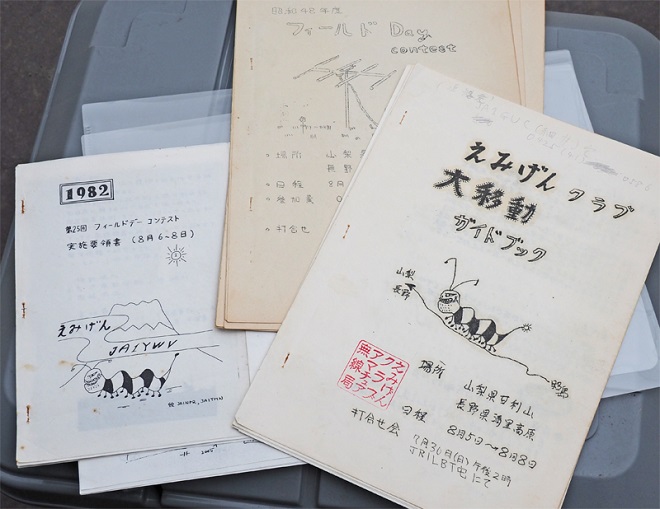 1982
第25回 フィールドデー コンテスト
実施要領書 (8月6~8日)
えみげん
JA1YWV
フィールド Day
contest
場所 山梨
長野
日程 8
参加
打合せ
えみげん クラブ
大移動
ガイドブック
山梨
長野
えみげん
クラブ
アマチュア
無線局
場所 山梨県甘利山
長野県清里高原
日程 8月5日→8月8日
打合せ会 7月30日(日)午後2時
JR1LBT宅にて